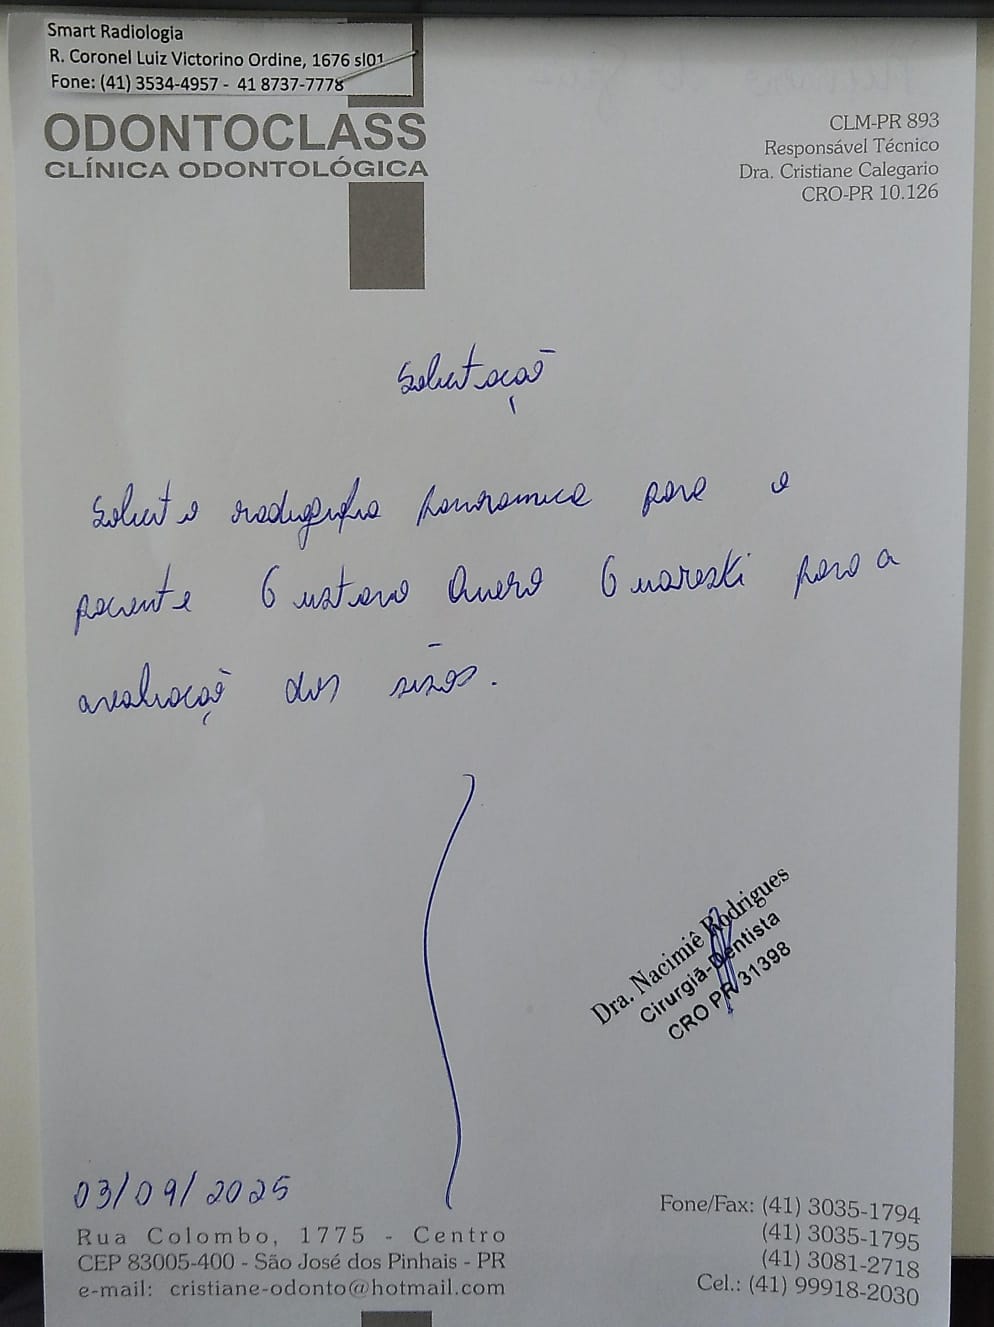 Smart Radiologia
R. Coronel Luiz Victorino Ordine, 1676 sl01
Fone: (41) 3534-4957 - 41 8737-7778
ODONTOCLASS
CLÍNICA ODONTOLÓGICA
CLM-PR 893
Responsável Técnico
Dra. Cristiane Calegario
CRO-PR 10.126
Solicitação
Solicito radiografia panoramica para o
paciente Gustavo Guareski para a
avaliação dos sisos.
Dra. Nacimiê Rodrigues
Cirurgiã-Dentista
CRO PR 31398
03/09/2025
Rua Colombo, 1775 - Centro
CEP 83005-400 - São José dos Pinhais - PR
e-mail: cristiane-odonto@hotmail.com
Fone/Fax: (41) 3035-1794
(41) 3035-1795
(41) 3081-2718
Cel.: (41) 99918-2030